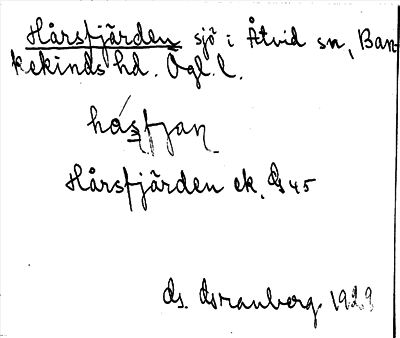 Hårsfjärden sjö i Åtvid sn, Ban-
kekinds hd. Ögl. l.
håsfjan
Hårsfjärden ek. G 45
Gs. Granberg. 1929